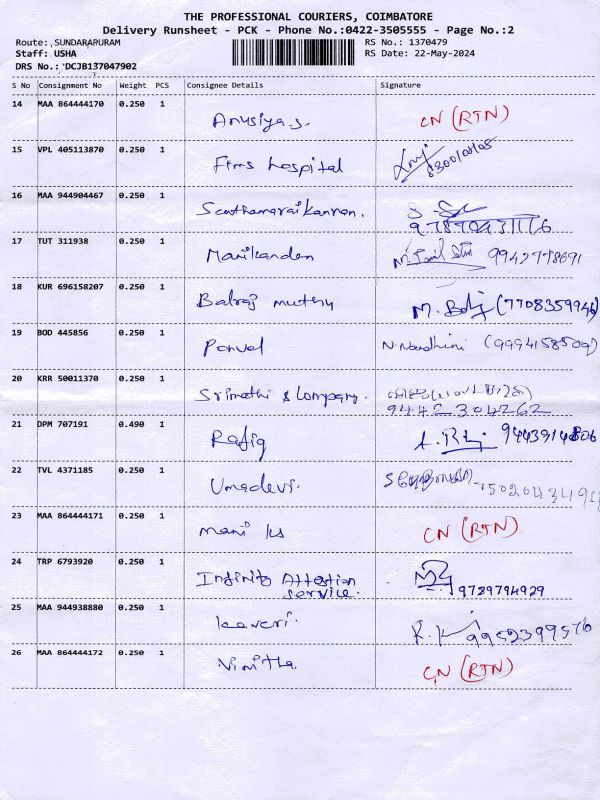 THE PROFESSIONAL COURIERS, COIMBATORE
Delivery Runsheet - PCK - Phone No.:0422-3505555 - Page No.:2
Route: SUNDARAPURAM RS No.: 1370479
Staff: USHA RS Date: 22-May-2024
DRS No.: DCJB137047902
S No Consignment No Weight PCS Consignee Details Signature
14 MAA 864444170 0.250 1 Anusiya.s. CN (RTN)
15 VPL 405113870 0.250 1 Fims hospital
16 MAA 944904467 0.250 1 Senthamaraikannan.
17 TUT 311938 0.250 1 Manikandan 9942778691
18 KUR 696158207 0.250 1 Balraj muthu M. Balaj (7708359946)
19 BOD 445856 0.250 1 Ponvel N. Nandhini (9994158509)
20 KRR 50011370 0.250 1 Srimathi & Company.
9442304262
21 DPM 707191 0.490 1 Rafiq
22 TVL 4371185 0.250 1 Umadevi.
23 MAA 864444171 0.250 1 mani ks CN (RTN)
24 TRP 6793920 0.250 1 Infinity Attestion
service. 9789794929
25 MAA 944938880 0.250 1 kaveri. 9952399576
26 MAA 864444172 0.250 1 Vinitha. CN (RTN)